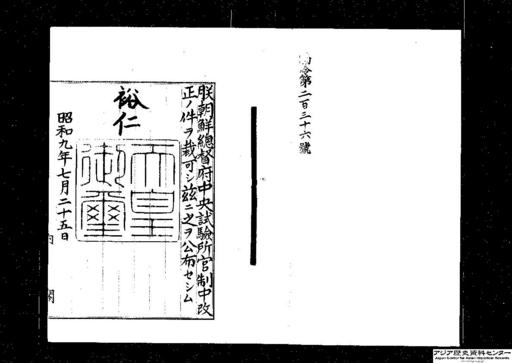 勅令第二百三十六號
朕朝鮮總督府中央試驗所官制中改
正ノ件ヲ裁可シ茲ニ之ヲ公布セシム
裕仁
天皇御璽
昭和九年七月二十五日
内閣
アジア歴史資料センター
Japan Center for Asian Historical Records